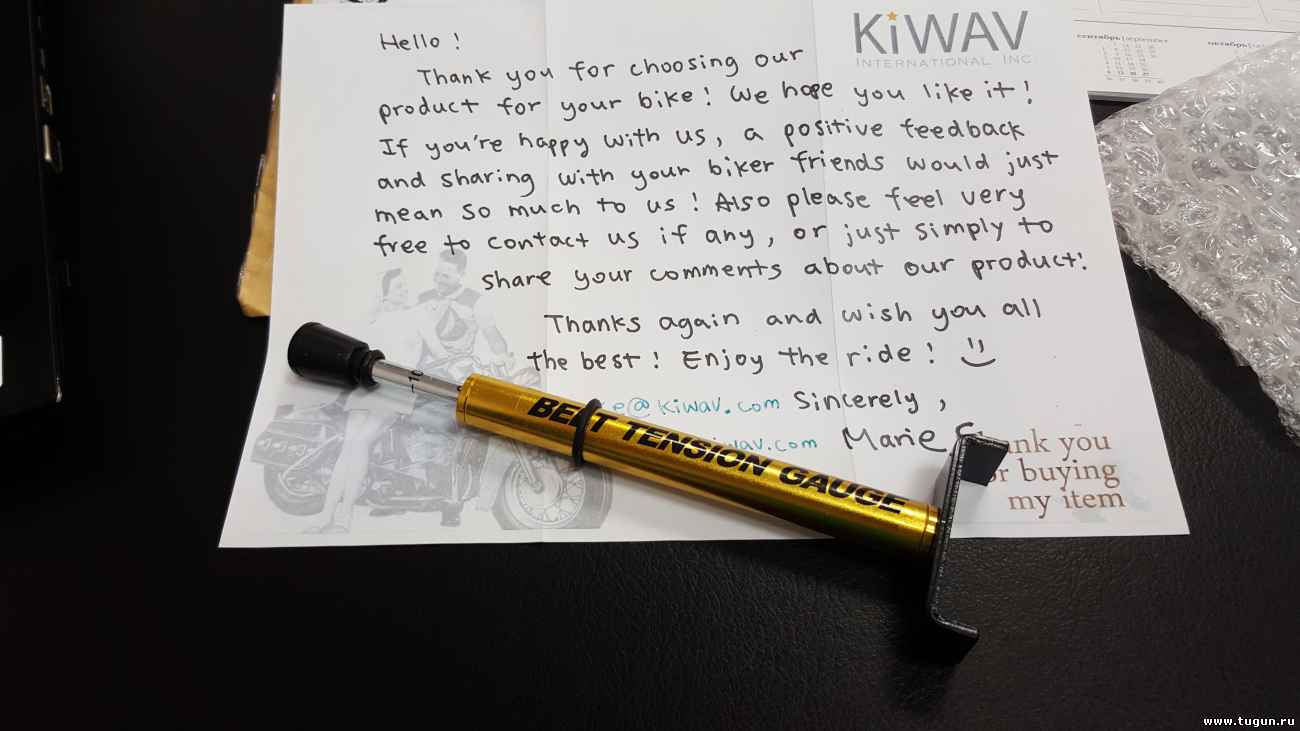 KiWAV
INTERNATIONAL INC
Hello !
Thank you for choosing our
product for your bike! We hope you like it!
If you're happy with us, a positive feedback
and sharing with your biker friends would just
mean so much to us! Also please feel very
free to contact us if any, or just simply to
share your comments about our product!
Thanks again and wish you all
the best! Enjoy the ride!
@kiwav.com Sincerely,
.com Marie
BELT TENSION GAUGE
10
you
buying
my item
сентябрь|september
октябрь
www.tugun.ru